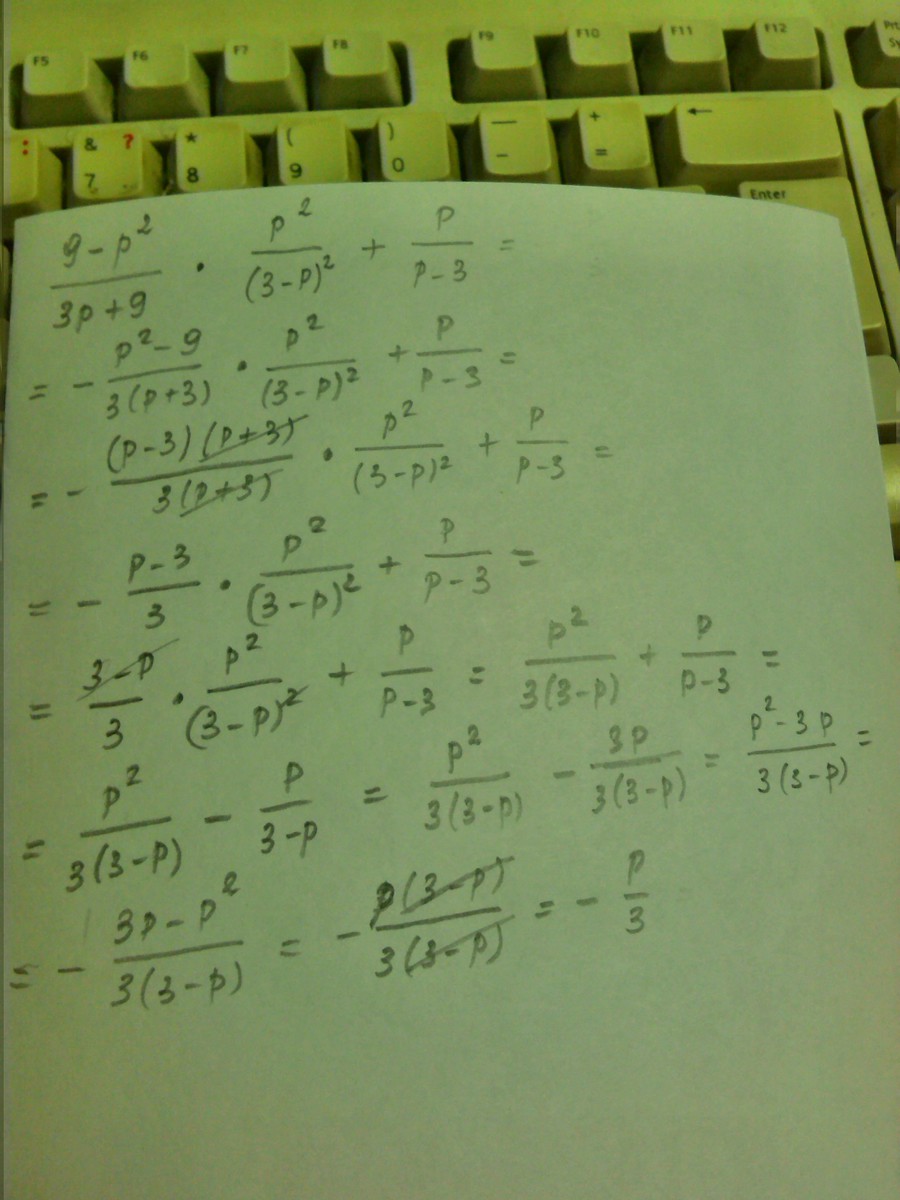 F5 F6 F7 F8 F9 F10 F11 F12
: & 7 ? * 8 ( 9 ) 0 — - + = ←
Enter
(9-p²)/(3p+9) · p²/(3-p)² + p/(p-3) =
= - (p²-9)/(3(p+3)) · p²/(3-p)² + p/(p-3) =
= - ((p-3)(p+3))/(3(p+3)) · p²/(3-p)² + p/(p-3) =
= - (p-3)/3 · p²/(3-p)² + p/(p-3) =
= (3-p)/3 · p²/(3-p)² + p/(p-3) = p²/(3(3-p)) + p/(p-3) =
= p²/(3(3-p)) - p/(3-p) = p²/(3(3-p)) - 3p/(3(3-p)) = (p²-3p)/(3(3-p)) =
= - (3p-p²)/(3(3-p)) = - (p(3-p))/(3(3-p)) = - p/3